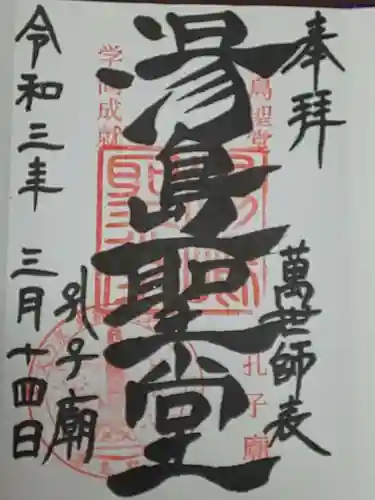 奉拝
萬世師表
湯島聖堂
孔子廟
令和三年 三月十四日
湯島聖堂
孔子廟
学問成就